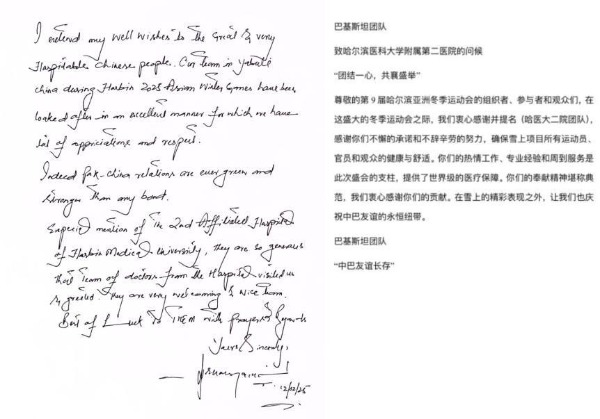 I extend my well wishes to the Great & very
Hospitable Chinese people. Our team in Yabuli
China during Harbin 2025 Asian Winter Games have been
looked after in an excellent manner for which we have
lot of appreciations and respect.
Indeed Pak-China relations are ever green and
stronger than any bond.
Especial mention of the 2nd Affiliated Hospital
of Harbin Medical University, they are so generous
that team of doctors from the Hospital visited us
& greeted. They are very welcoming & nice team.
Best of Luck to them with prayers &
Yours Sincerely,
12/02/25
巴基斯坦团队
致哈尔滨医科大学附属第二医院的问候
“团结一心，共襄盛举”
尊敬的第 9 届哈尔滨亚洲冬季运动会的组织者、参与者和观众们，在
这盛大的冬季运动会之际，我们衷心感谢并提名（哈医大二院团队），
感谢你们不懈的承诺和不辞辛劳的努力，确保雪上项目所有运动员、
官员和观众的健康与舒适。你们的热情工作、专业经验和周到服务是
此次盛会的支柱，提供了世界级的医疗保障，你们的奉献精神堪称典
范，我们衷心感谢你们的贡献。在雪上的精彩表现之外，让我们也庆
祝中巴友谊的永恒纽带。
巴基斯坦团队
“中巴友谊长存”